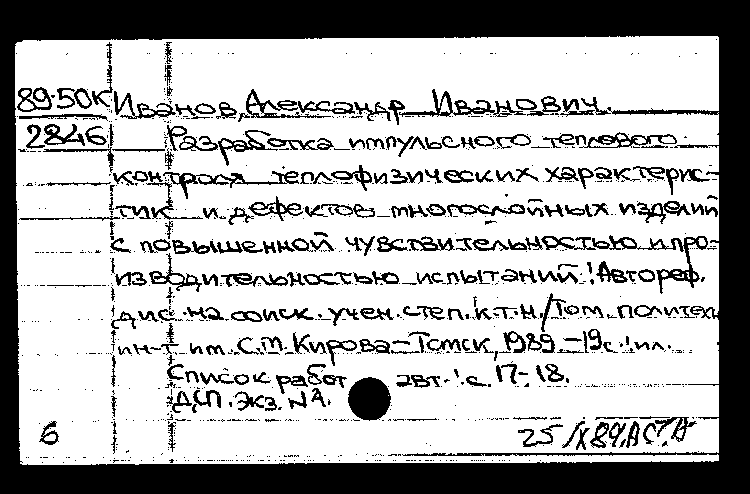 89-50К Иванов, Александр Иванович.
2846 Разработка импульсного теплового
контроля теплофизических характерис-
тик и дефектов многослойных изделий
с повышенной чувствительностью и про-
изводительностью испытаний: Автореф.
дис. на соиск. учен. степ. к.т.н./Том. политехн.
ин-т им. С.М. Кирова - Томск, 1989. - 19с.: ил.
Список работ авт.: с. 17-18.
ДСП. Экз. №
6 25/X89